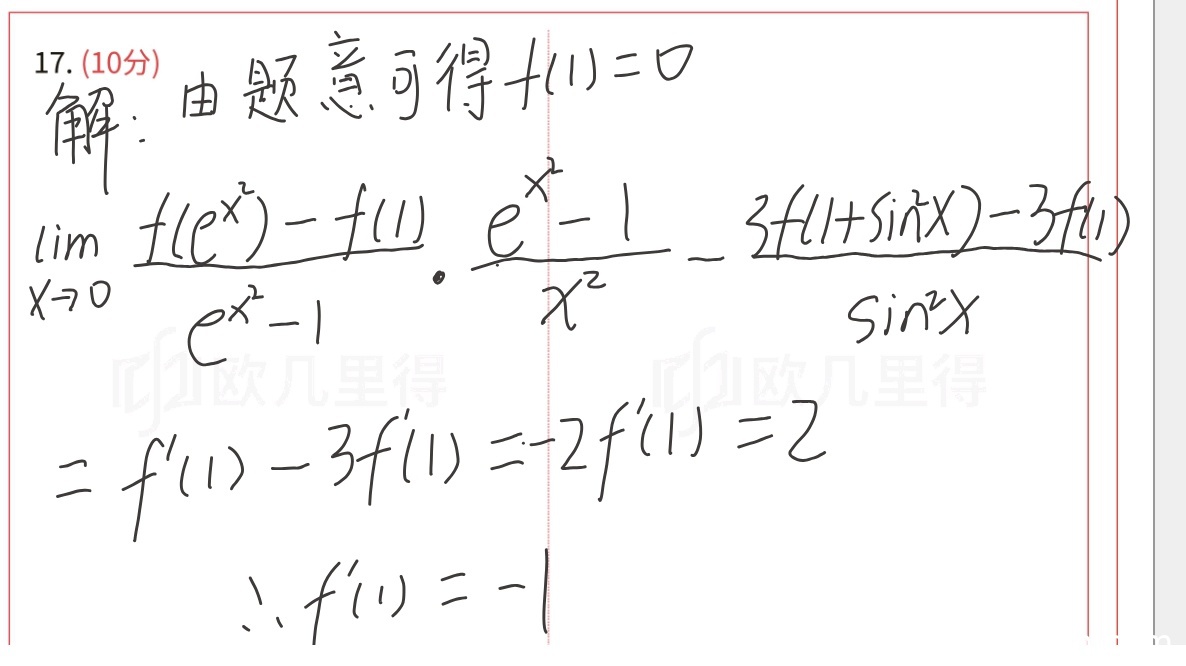 17. (10分)
解: 由题意可得 f(1)=0
lim x→0 (f(e^(x^2))-f(1))/(e^(x^2)-1) · (e^(x^2)-1)/x^2 - (3f(1+sin^2x)-3f(1))/(sin^2x)
欧几里得 欧几里得
= f'(1) - 3f'(1) = -2f'(1) = 2
∴ f'(1) = -1